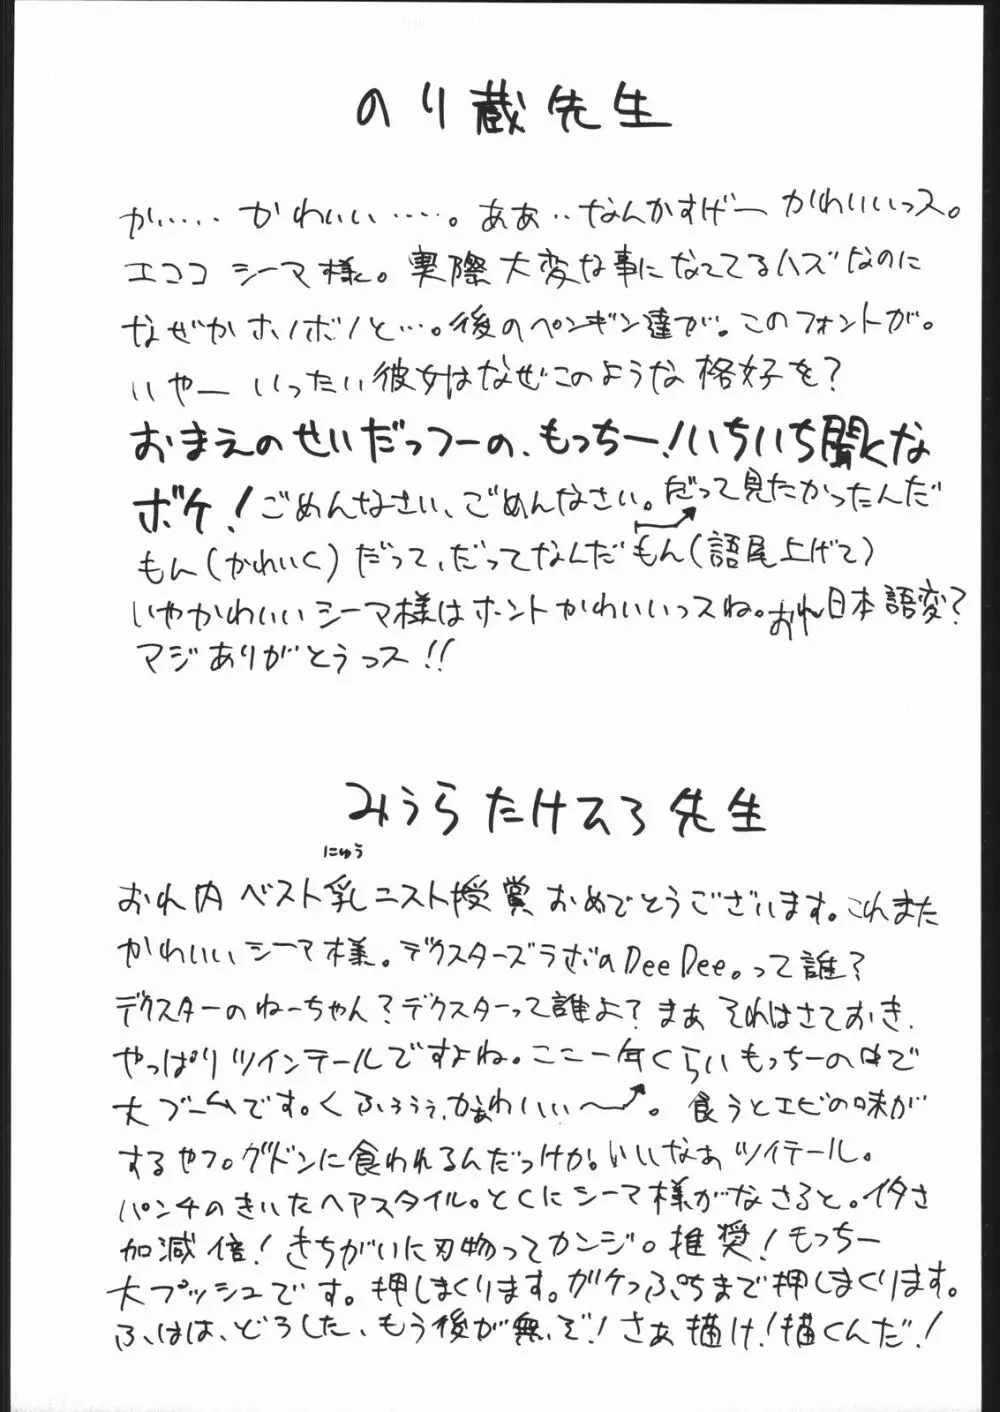 のり蔵先生
か‥‥‥ かわいい‥‥‥。ああ‥なんかすげー かわいいっス。
エココ シーマ様。実際大変な事になってるハズなのに
なぜかホノボノと…。後のペンギン達が。このフォントが。
いやー いったい彼女はなぜこのような格好を?
おまえのせいだっつーの、もっちー!いちいち聞くな
ボケ!ごめんなさい、ごめんなさい。だって見たかったんだ
もん(かわいく)だって、だってなんだもん(語尾上げて)
いやかわいいシーマ様はホントかわいいっスね。おれ日本語変?
マジありがとうっス!!
みうらたけひろ先生
にゅう
おれ内ベスト乳ニスト授賞おめでとうございます。これまた
かわいいシーマ様。デクスターズラボのDeeDee。って誰?
デクスターのねーちゃん?デクスターって誰よ?まぁそれはさておき、
やっぱりツインテールですよね。ここ一年くらいもっちーの中で
大ブームです。くふぅぅぅ、かぁわいいぃ〜。食うとエビの味が
するやつ。グドンに食われるんだっけか。いいなぁツイテール。
パンチのきいたヘアスタイル。とくにシーマ様がなさると。イタさ
加減倍!きちがいに刃物ってカンジ。推奨!もっちー
大プッシュです。押しまくります。ガケっぷちまで押しまくります。
ふはは、どうした、もう後が無いぞ!さぁ描け!描くんだ!